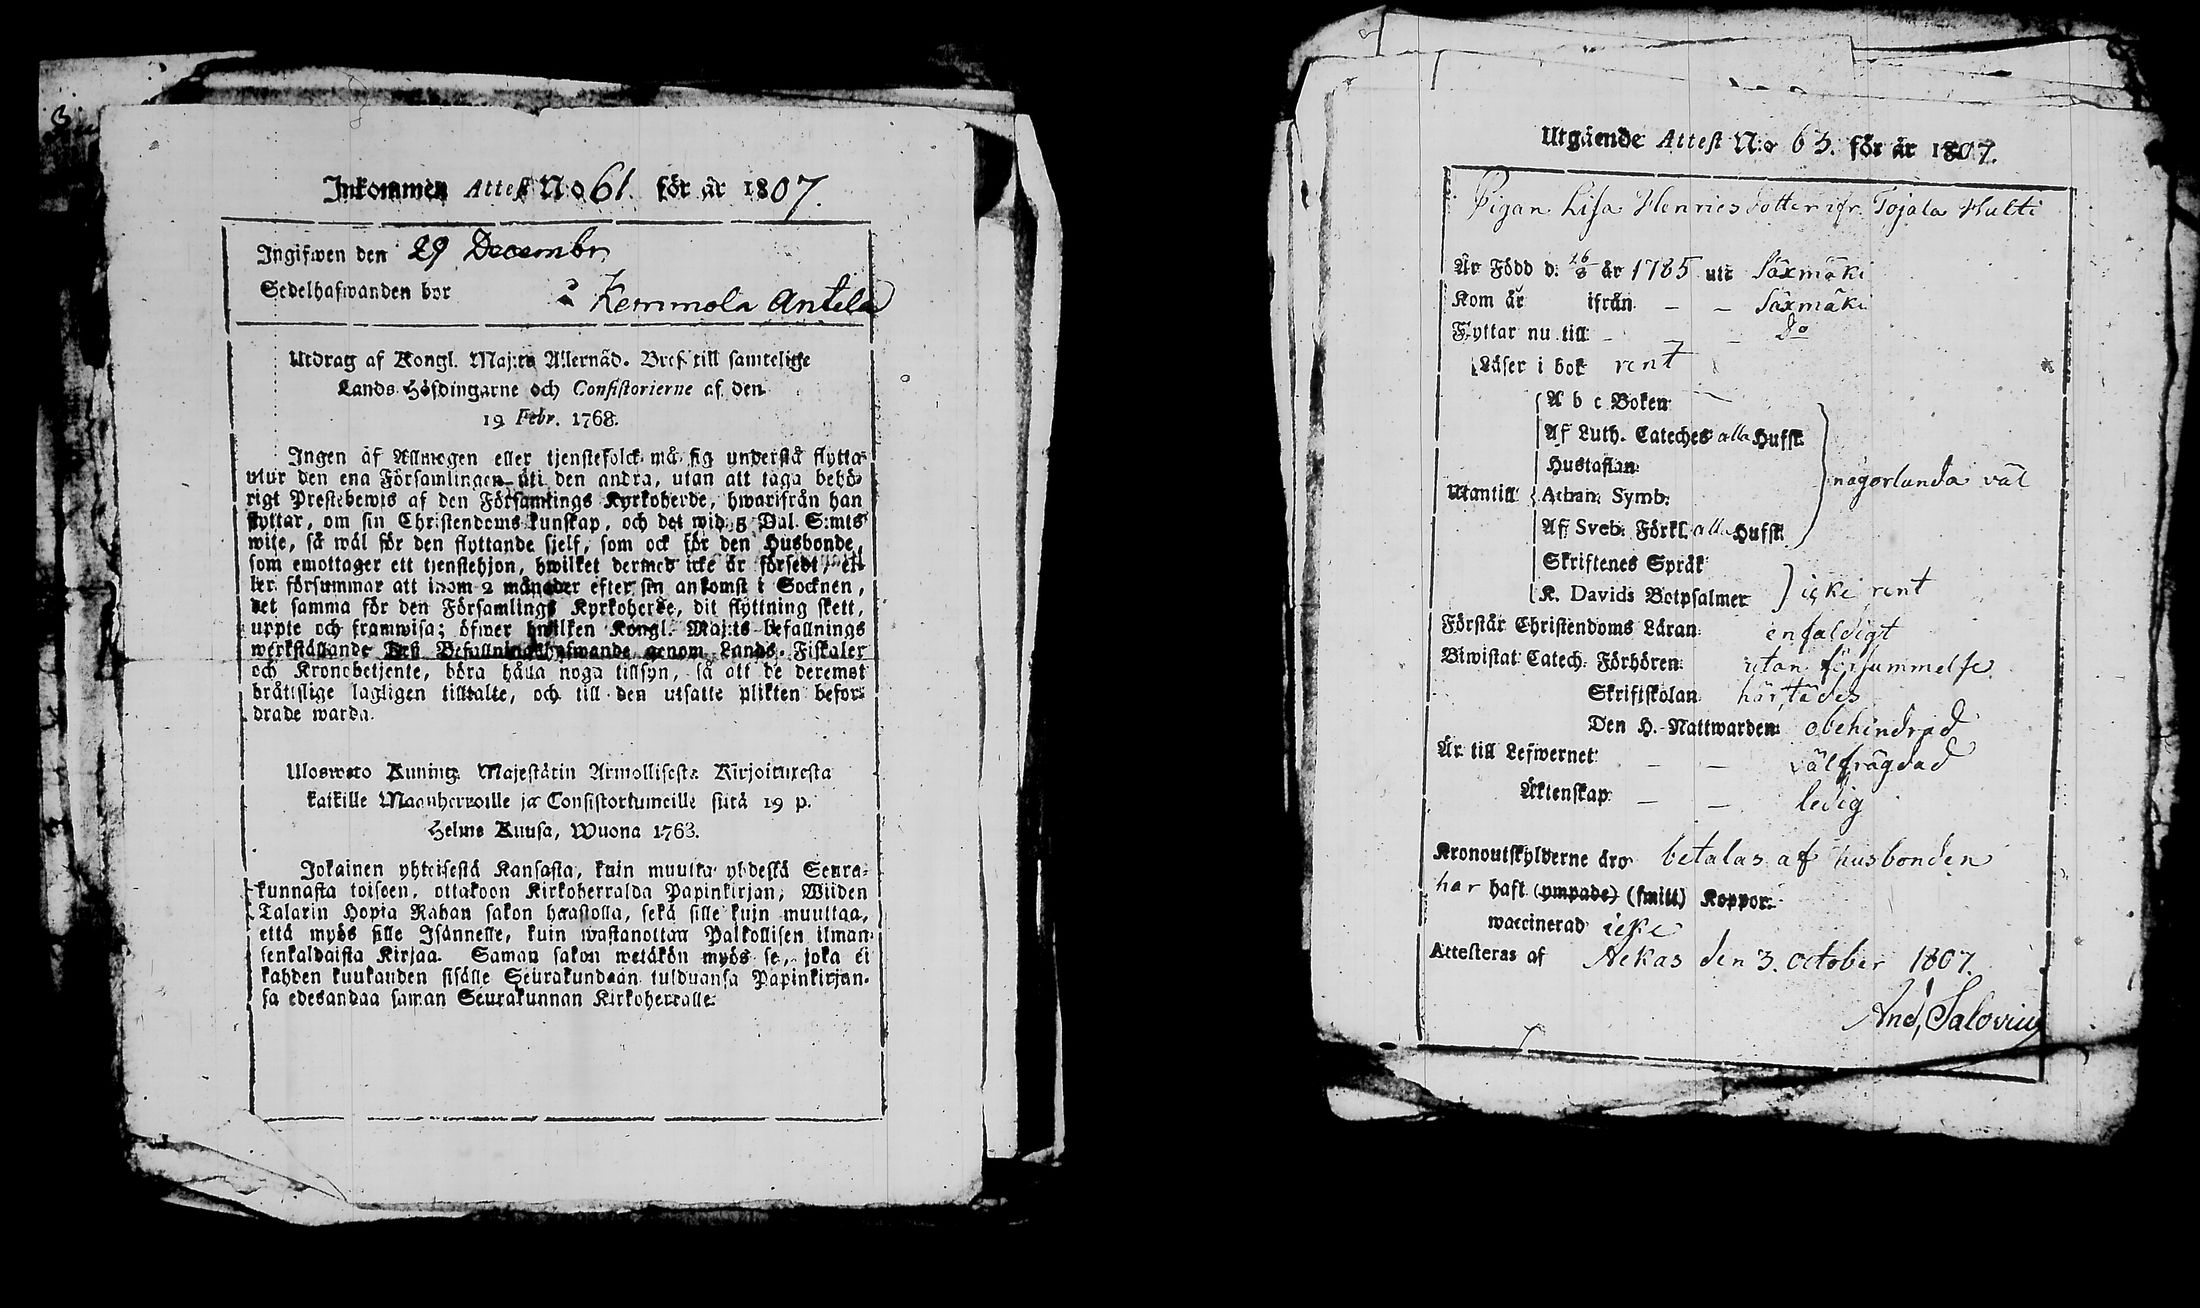 Inkommen Attest N:o 61. för år 1807.
Ingifwen den 29 Decembr
Sedelhafwanden bor
Kemmola Antela
Utdrag af Kongl. Maj:ts Allernåd. Bref till samtelige
Lands-Höfdingarne och Consistorierne af den
19 Febr. 1768.
Ingen af Allmogen eller tjenstefolck må sig understå flytta
utur den ena Församlingen uti den andra, utan att taga behö-
rigt Prestebewis af den Församlings Kyrkoherde, hwarifrån han
flyttar, om sin Christendoms kunskap, och det wid 5 Dal. S:mts
wite, så wäl för den flyttande sjelf, som ock för den Husbonde,
som emottager ett tjenstehjon, hwilket dermed icke är försedt, el-
ler försummar att inom 2 månader efter sin ankomst i Socknen,
det samma för den Församlings Kyrkoherde, dit flyttning skett,
uppte och framwisa; öfwer hwilken Kongl. Maj:ts befallnings
werkställande Dess Befallningshafwande genom Lands-Fiskaler
och Kronobetjente, böra hålla noga tillsyn, så att de deremot
bråttslige lagligen tilltalte, och till den utsatte plikten befor-
drade warda.
Ulosweto Kuning. Majestätin Armollisesta Kirjoituxesta
kaikille Maanherroille ja Consistoriumeille siitä 19 p.
Helme Kuusa, Wuona 1763.
Jokainen yhteisestä Kansasta, kuin muutta yhdestä Seura-
kunnasta toiseen, ottakoon Kirkoherralda Papinkirjan, Wiiden
Talarin Hopia Rahan sakon haastolla, sekä sille kuin muuttaa,
että myös sille Isännelle, kuin wastanottaa Palkollisen ilman
senkaldaista Kirjaa. Saman sakon wetäkön myös se, joka ei
kahden kuukauden sisälle Seurakundaan tulduansa Papinkirjan-
sa edesandaa saman Seurakunnan Kirkoherralle.
Utgående Attest N:o 63. för år 1807.
Pigan Lisa Henricsdotter ifr. Tojala Hulti
Är Född d. 16/8 år 1785 uti Säxmäki
Kom år ifrån – – Säxmäki
Flyttar nu till – – Do
Läser i bok rent
A b c Boken
Af Luth. Cateches alla Hufst.
Hustaflan
Utantill Athan. Symb. någorlunda väl
Af Sveb. Förkl. alla Hufst.
Skriftenes Språk
K. Davids Botpsalmer icke rent
Förstår Christendoms Läran enfaldigt
Biwistat Catech. Förhören utan försummelse
Skriftskolan härstädes
Den H. Nattwarden obehindrad
Är till Lefwernet – – välfrägdad
Äktenskap – – ledig
Kronoutskylderne äro betalas af husbonden
har haft (ympade) (smitt) Koppor
waccinerad icke
Attesteras af Aekas den 3. october 1807.
And. Salovius